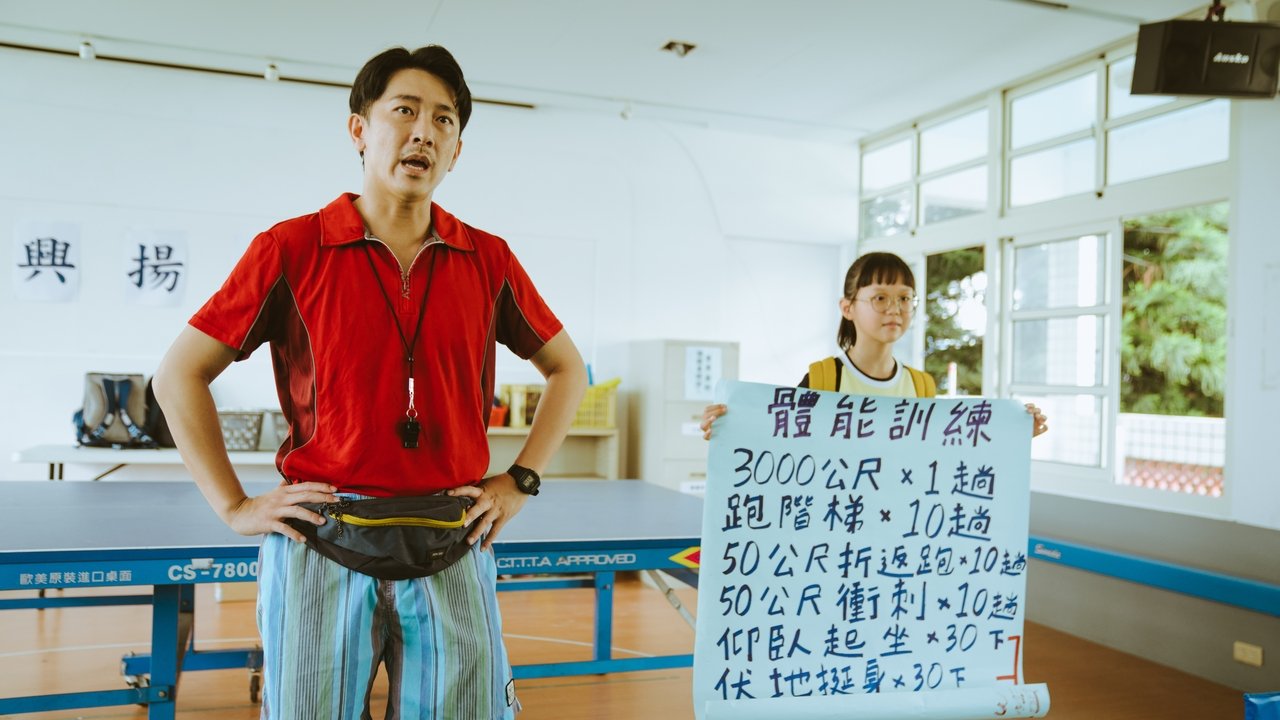 興 揚
Ansko
體能訓練
3000公尺×1趟
跑階梯×10趟
50公尺折返跑×10趟
50公尺衝刺×10趟
仰臥起坐×30下
伏地挺身×30下
歐美原裝進口桌面
CS-7800
C.T.T.T.A APPROVED